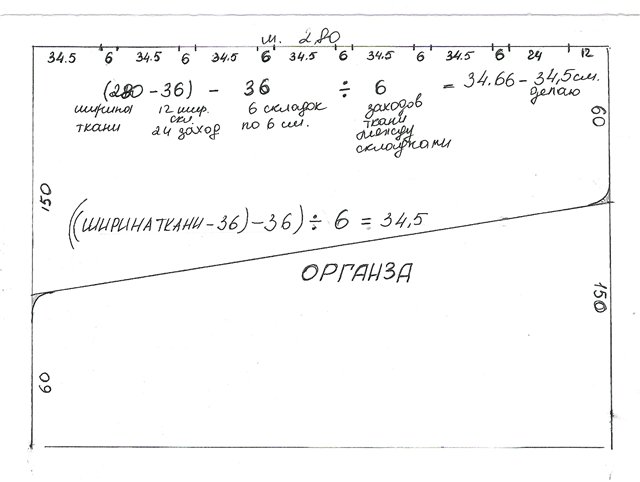 м. 280
34.5 6 34.5 6 34.5 6 34.5 6 34.5 6 34.5 6 24 12
(280 - 36) - 36 ÷ 6 = 34.66 - 34,5 см.
делаю
ширина ткани
12 шир. скл.
24 заход
6 складок
по 6 см.
заходов
ткани
между
складками
60
150
((ШИРИНА ТКАНИ - 36) - 36) ÷ 6 = 34,5
ОРГАНЗА
150
60